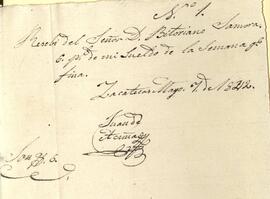 N.º 1.
Recibi del Señor D. Bitoriano Samora
6. p.s de mi Sueldo de la Semana q.e
fina.
Zacatecas Mayo 7. de 1842.
Juan de
Son $ 6.